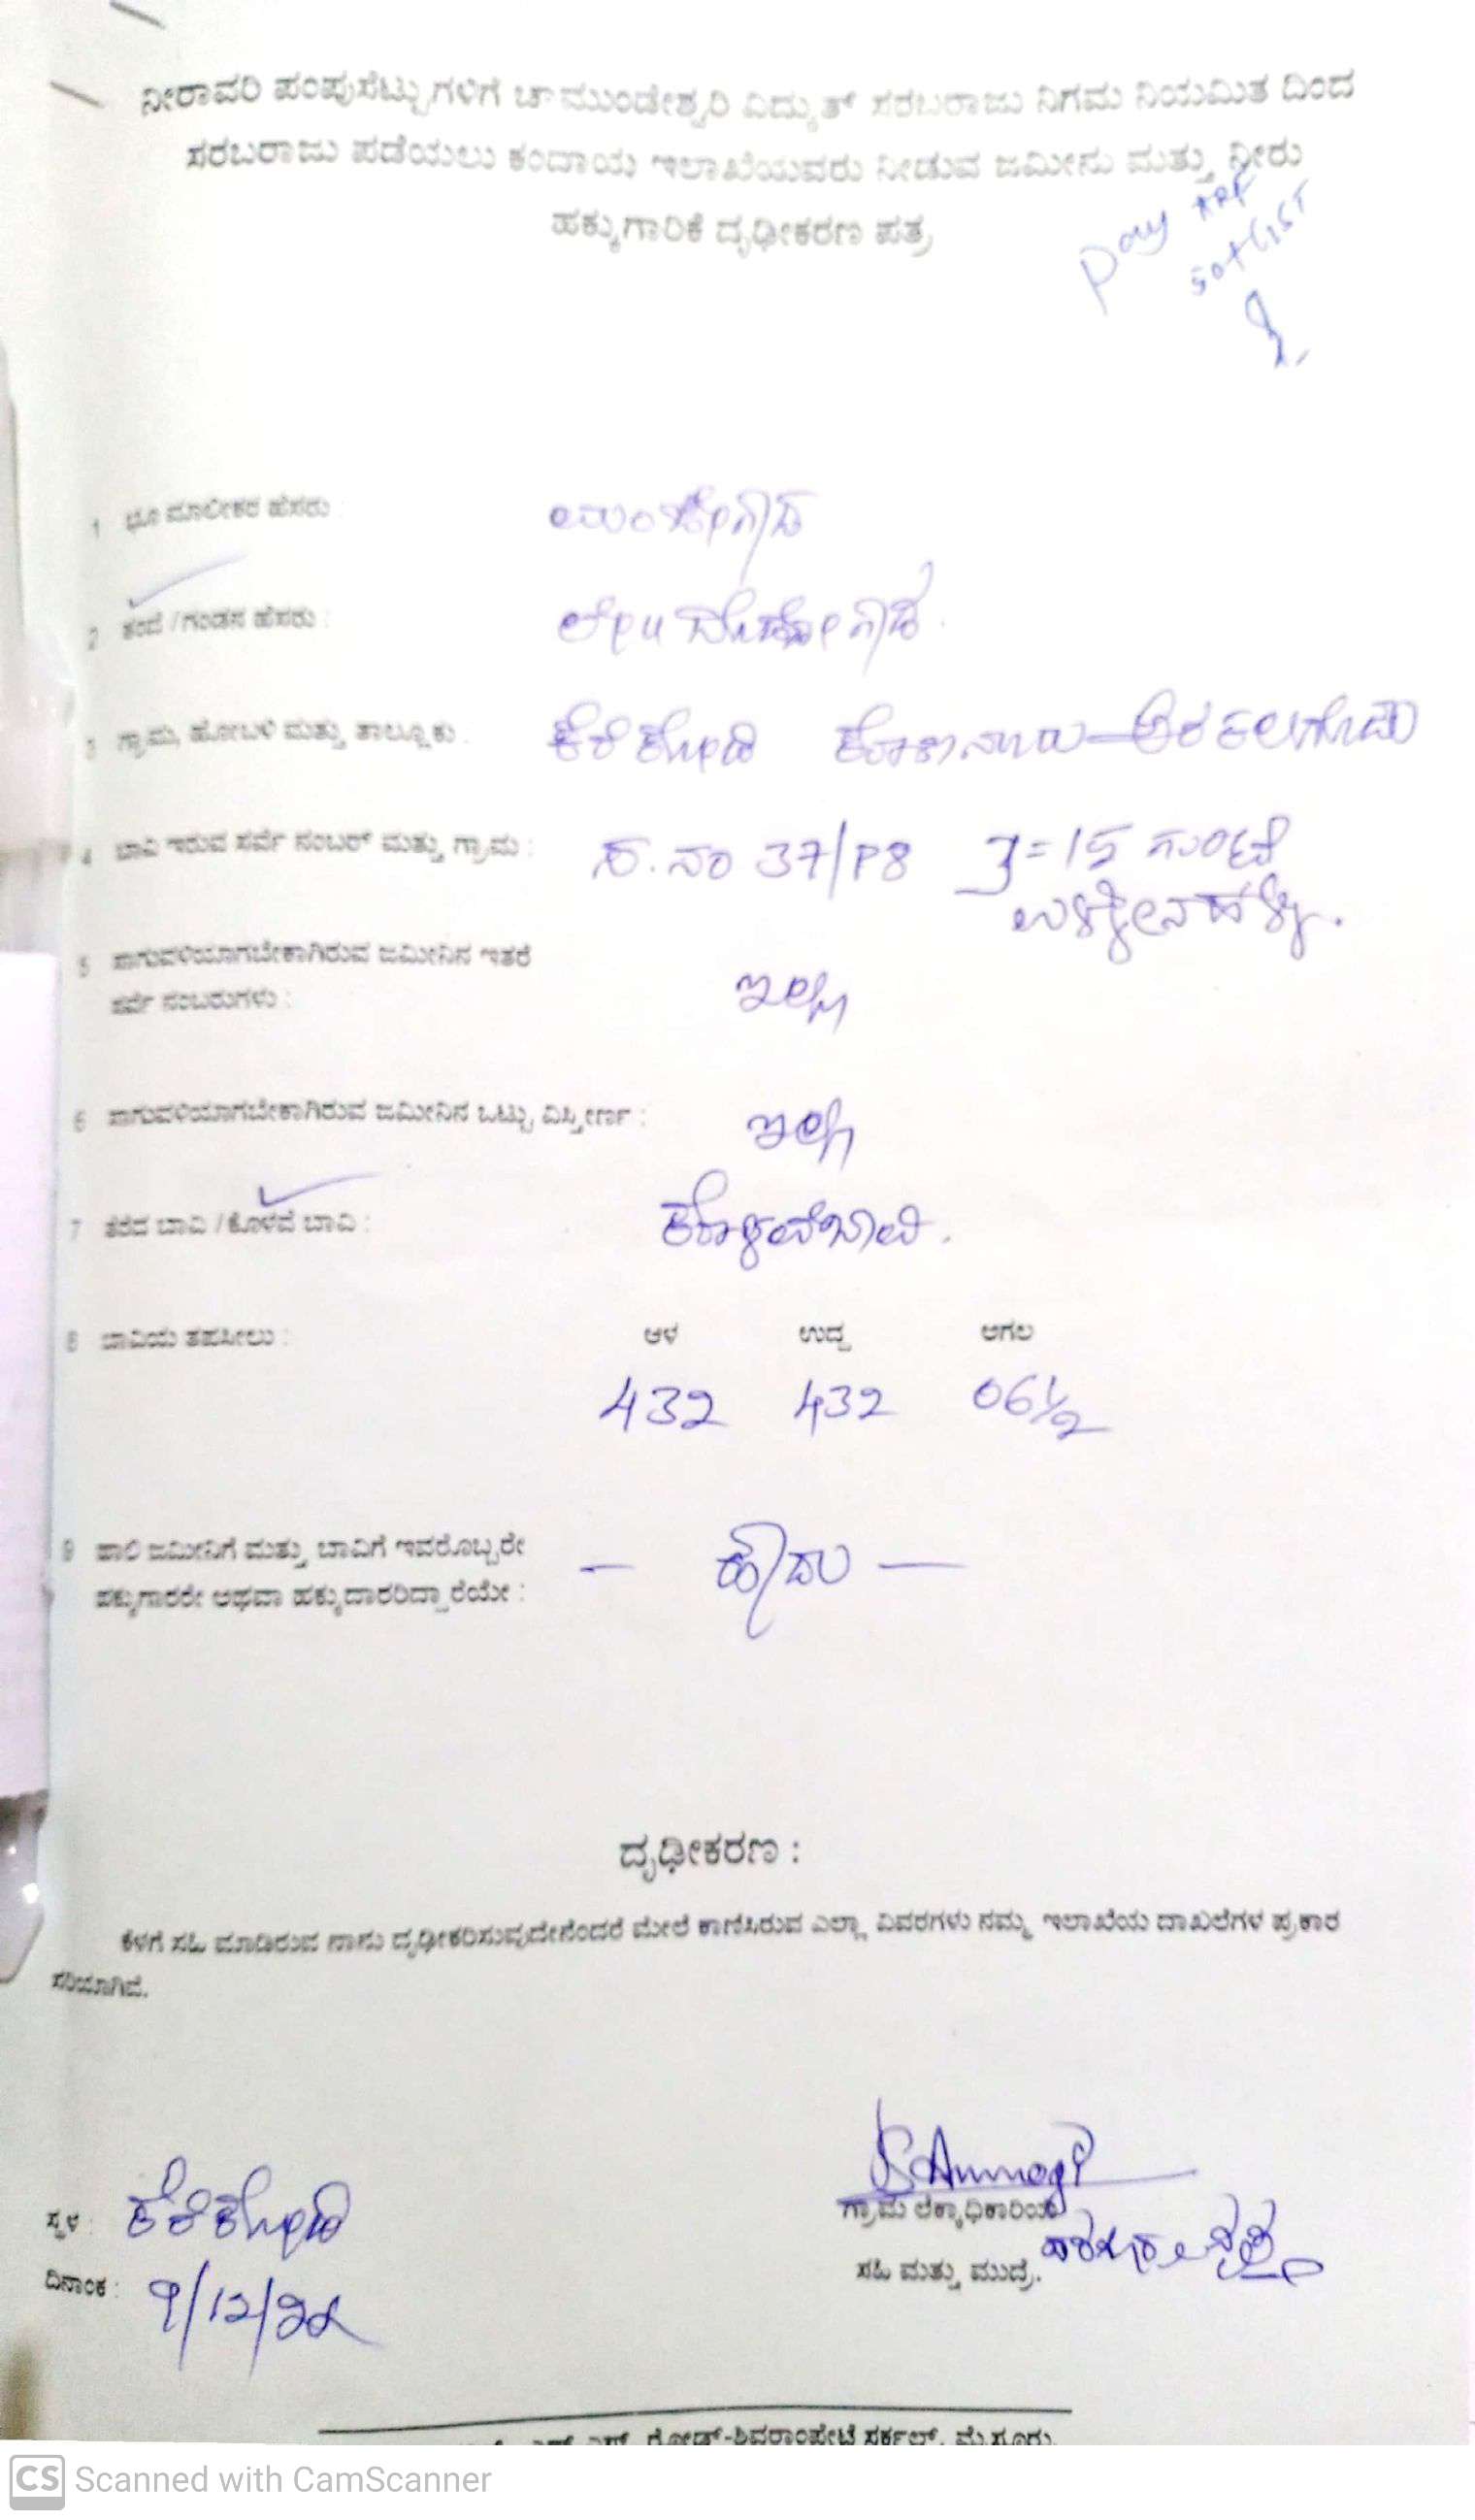 ನೀರಾವರಿ ಪಂಪುಸೆಟ್ಟುಗಳಿಗೆ ಚಾಮುಂಡೇಶ್ವರಿ ವಿದ್ಯುತ್ ಸರಬರಾಜು ನಿಗಮ ನಿಯಮಿತ ದಿಂದ
ಸರಬರಾಜು ಪಡೆಯಲು ಕಂದಾಯ ಇಲಾಖೆಯವರು ನೀಡುವ ಜಮೀನು ಮತ್ತು ನೀರು
ಹಕ್ಕುಗಾರಿಕೆ ದೃಢೀಕರಣ ಪತ್ರ
pay ARF
50+GST
1 ಭೂ ಮಾಲೀಕರ ಹೆಸರು :
2 ತಂದೆ / ಗಂಡನ ಹೆಸರು :
3 ಗ್ರಾಮ, ಹೋಬಳಿ ಮತ್ತು ತಾಲ್ಲೂಕು . ಕೆರೆಕೋಡಿ ಕೊಣನೂರು - ಅರಕಲಗೂಡು
4 ಬಾವಿ ಇರುವ ಸರ್ವೆ ನಂಬರ್ ಮತ್ತು ಗ್ರಾಮ : ಸ.ನಂ 37/P8 3=15 ಗುಂಟೆ
5 ಸಾಗುವಳಿಯಾಗಬೇಕಾಗಿರುವ ಜಮೀನಿನ ಇತರೆ
ಸರ್ವೆ ನಂಬರುಗಳು : ಇಲ್ಲ
6 ಸಾಗುವಳಿಯಾಗಬೇಕಾಗಿರುವ ಜಮೀನಿನ ಒಟ್ಟು ವಿಸ್ತೀರ್ಣ : ಇಲ್ಲ
7 ತೆರೆದ ಬಾವಿ / ಕೊಳವೆ ಬಾವಿ : ಕೊಳವೆಬಾವಿ.
8 ಬಾವಿಯ ತಹಸೀಲು : ಆಳ ಉದ್ದ ಅಗಲ
432 432 06 1/2
9 ಹಾಲಿ ಜಮೀನಿಗೆ ಮತ್ತು ಬಾವಿಗೆ ಇವರೊಬ್ಬರೇ
ಹಕ್ಕುಗಾರರೇ ಅಥವಾ ಹಕ್ಕುದಾರರಿದ್ದಾರೆಯೇ : — ಹೌದು —
ದೃಢೀಕರಣ :
ಕೆಳಗೆ ಸಹಿ ಮಾಡಿರುವ ನಾನು ದೃಢೀಕರಿಸುವುದೇನೆಂದರೆ ಮೇಲೆ ಕಾಣಿಸಿರುವ ಎಲ್ಲಾ ವಿವರಗಳು ನಮ್ಮ ಇಲಾಖೆಯ ದಾಖಲೆಗಳ ಪ್ರಕಾರ
ಸರಿಯಾಗಿದೆ.
ಸ್ಥಳ : ಕೆರೆಕೋಡಿ
ಗ್ರಾಮ ಲೆಕ್ಕಾಧಿಕಾರಿಯ
ಸಹಿ ಮತ್ತು ಮುದ್ರೆ.
ದಿನಾಂಕ : 9/12/24
ರೋಡ್-ಶಿವರಾಂಪೇಟೆ ಸರ್ಕಲ್, ಮೈಸೂರು.
CS Scanned with CamScanner